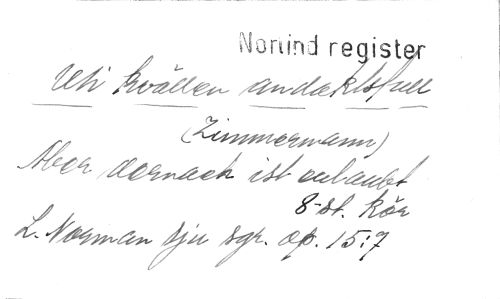 Nonind register
Uti kvällen andaktsfull
(Zimmermann)
Aber dernach ist erlaubt
8-st. kör
L. Norman sju sgr. op. 15:7